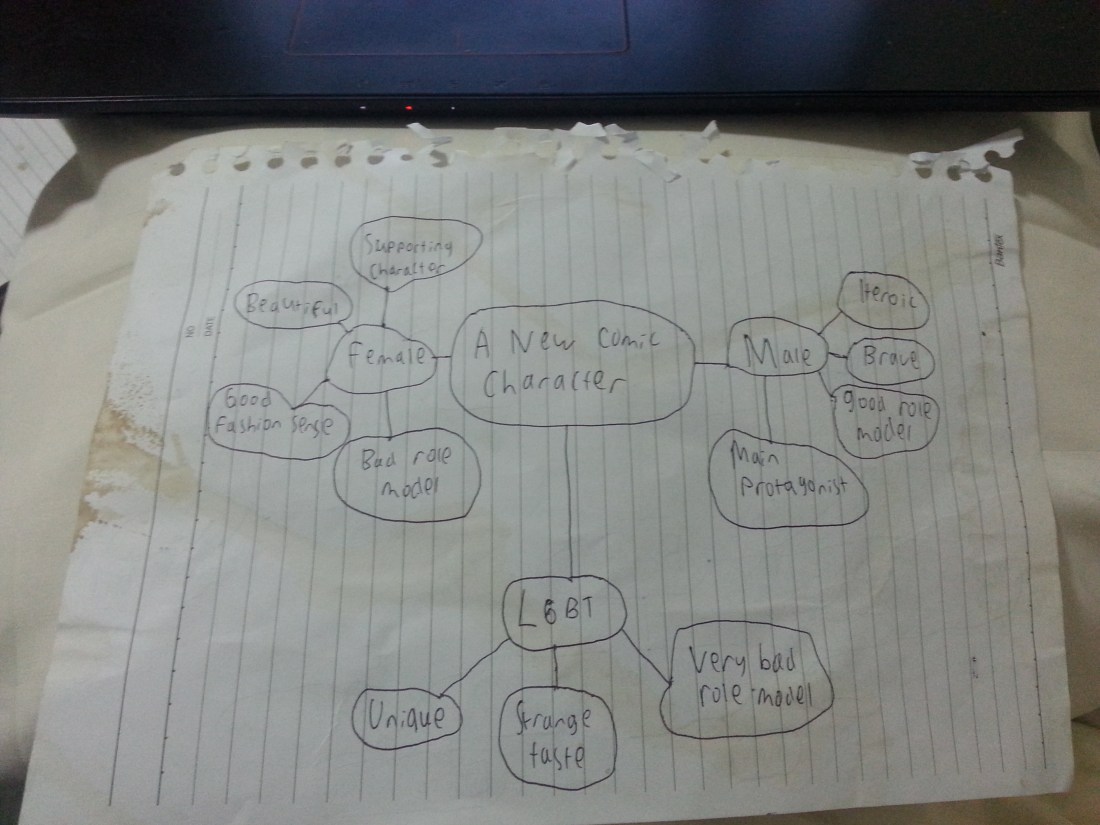 Supporting
Charactor
Beautiful
Female
Good
Fashion Sense
Bad role
model
A New Comic
Character
Male
Heroic
Brave
good role
model
Main
Protagonist
LGBT
Unique
Strange
taste
Very bad
role model
NO
DATE